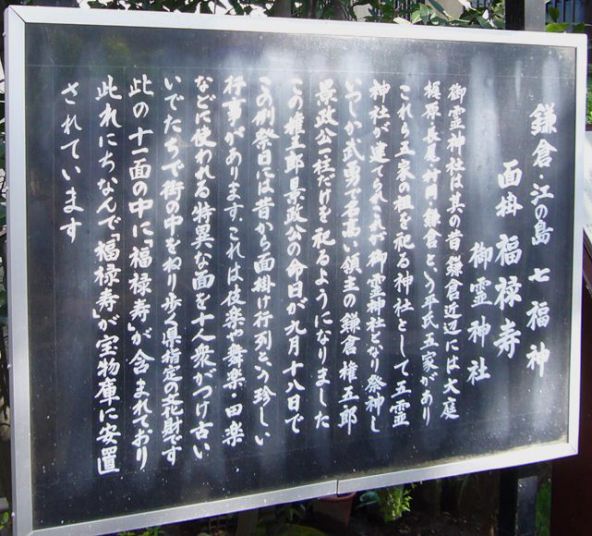 鎌倉・江の島 七福神
面掛 福禄寿
御霊神社
御霊神社は其の昔鎌倉近辺には大庭
梶原・長尾・村岡・鎌倉という平氏五家があり
これら五家の祖を祀る神社として五霊
神社が建てられこれが御霊神社となり祭神も
いつしか武勇で名高い領主の鎌倉権五郎
景政公一柱だけを祀るようになりました
この権五郎景政公の命日が九月十八日で
この例祭日には昔から面掛け行列という珍しい
行事があります。これは伎楽や舞楽・田楽
などに使われる特異な面を十人衆がつけ古い
いでたちで街の中をねり歩く県指定の文化財です
此の十一面の中に「福禄寿」が含まれており
此れにちなんで「福禄寿」が宝物庫に安置
されています